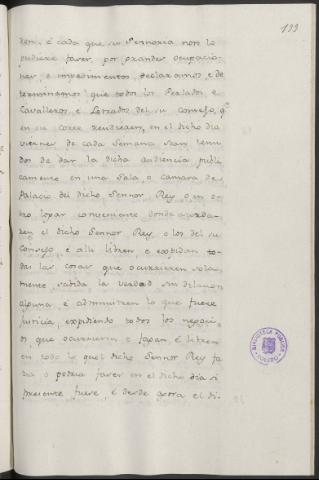 199
ren, é cada que su Sennoria non lo
pudiere facer, por grandes ocupacio-
nes, e impedimentos, declaramos, e de
terminamos que todos los Perlados e
Cavalleros, e Letrados del su consejo, q.e
en su corte residieren, en el dicho dia
viernes de cada semana sean tenu
dos de dar la dicha audiencia publi
camente en una Sala, o camara de
Palacio del dicho Sennor Rey o en o
tro logar conveniente donde acorda-
ren el dicho Sennor Rey, o los del su
Consejo é alli libren e expidan to-
das las cosas que ocurrieren sola-
mente, sabida la verdad sin dilacion
alguna é adminitren lo que fuere
justicia, expidiendo todos los negoci-
os que ocurrieren e fagan, é libren
en todo lo quel dicho Sennor Rey fa
ria o podria facer en el dicho dia si
presente fuere, é desde agora el di-
BIBLIOTECA PUBLICA
TOLEDO